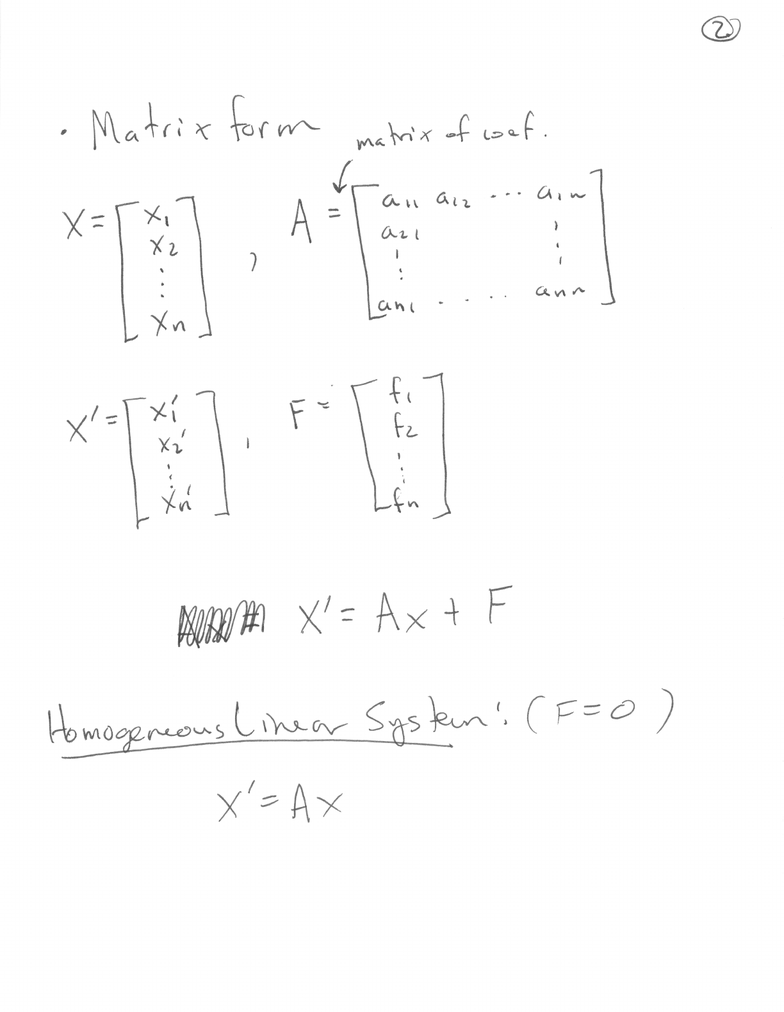 2
• Matrix form
matrix of coef.
X = [ x₁ x₂ ⋮ xₙ ] , A = [ a₁₁ a₁₂ ... a₁ₙ a₂₁ ⋮ ⋮ aₙ₁ .... aₙₙ ]
X' = [ x₁' x₂' ⋮ xₙ' ] , F = [ f₁ f₂ ⋮ fₙ ]
X' = Ax + F
Homogeneous Linear System: (F=0)
X' = Ax